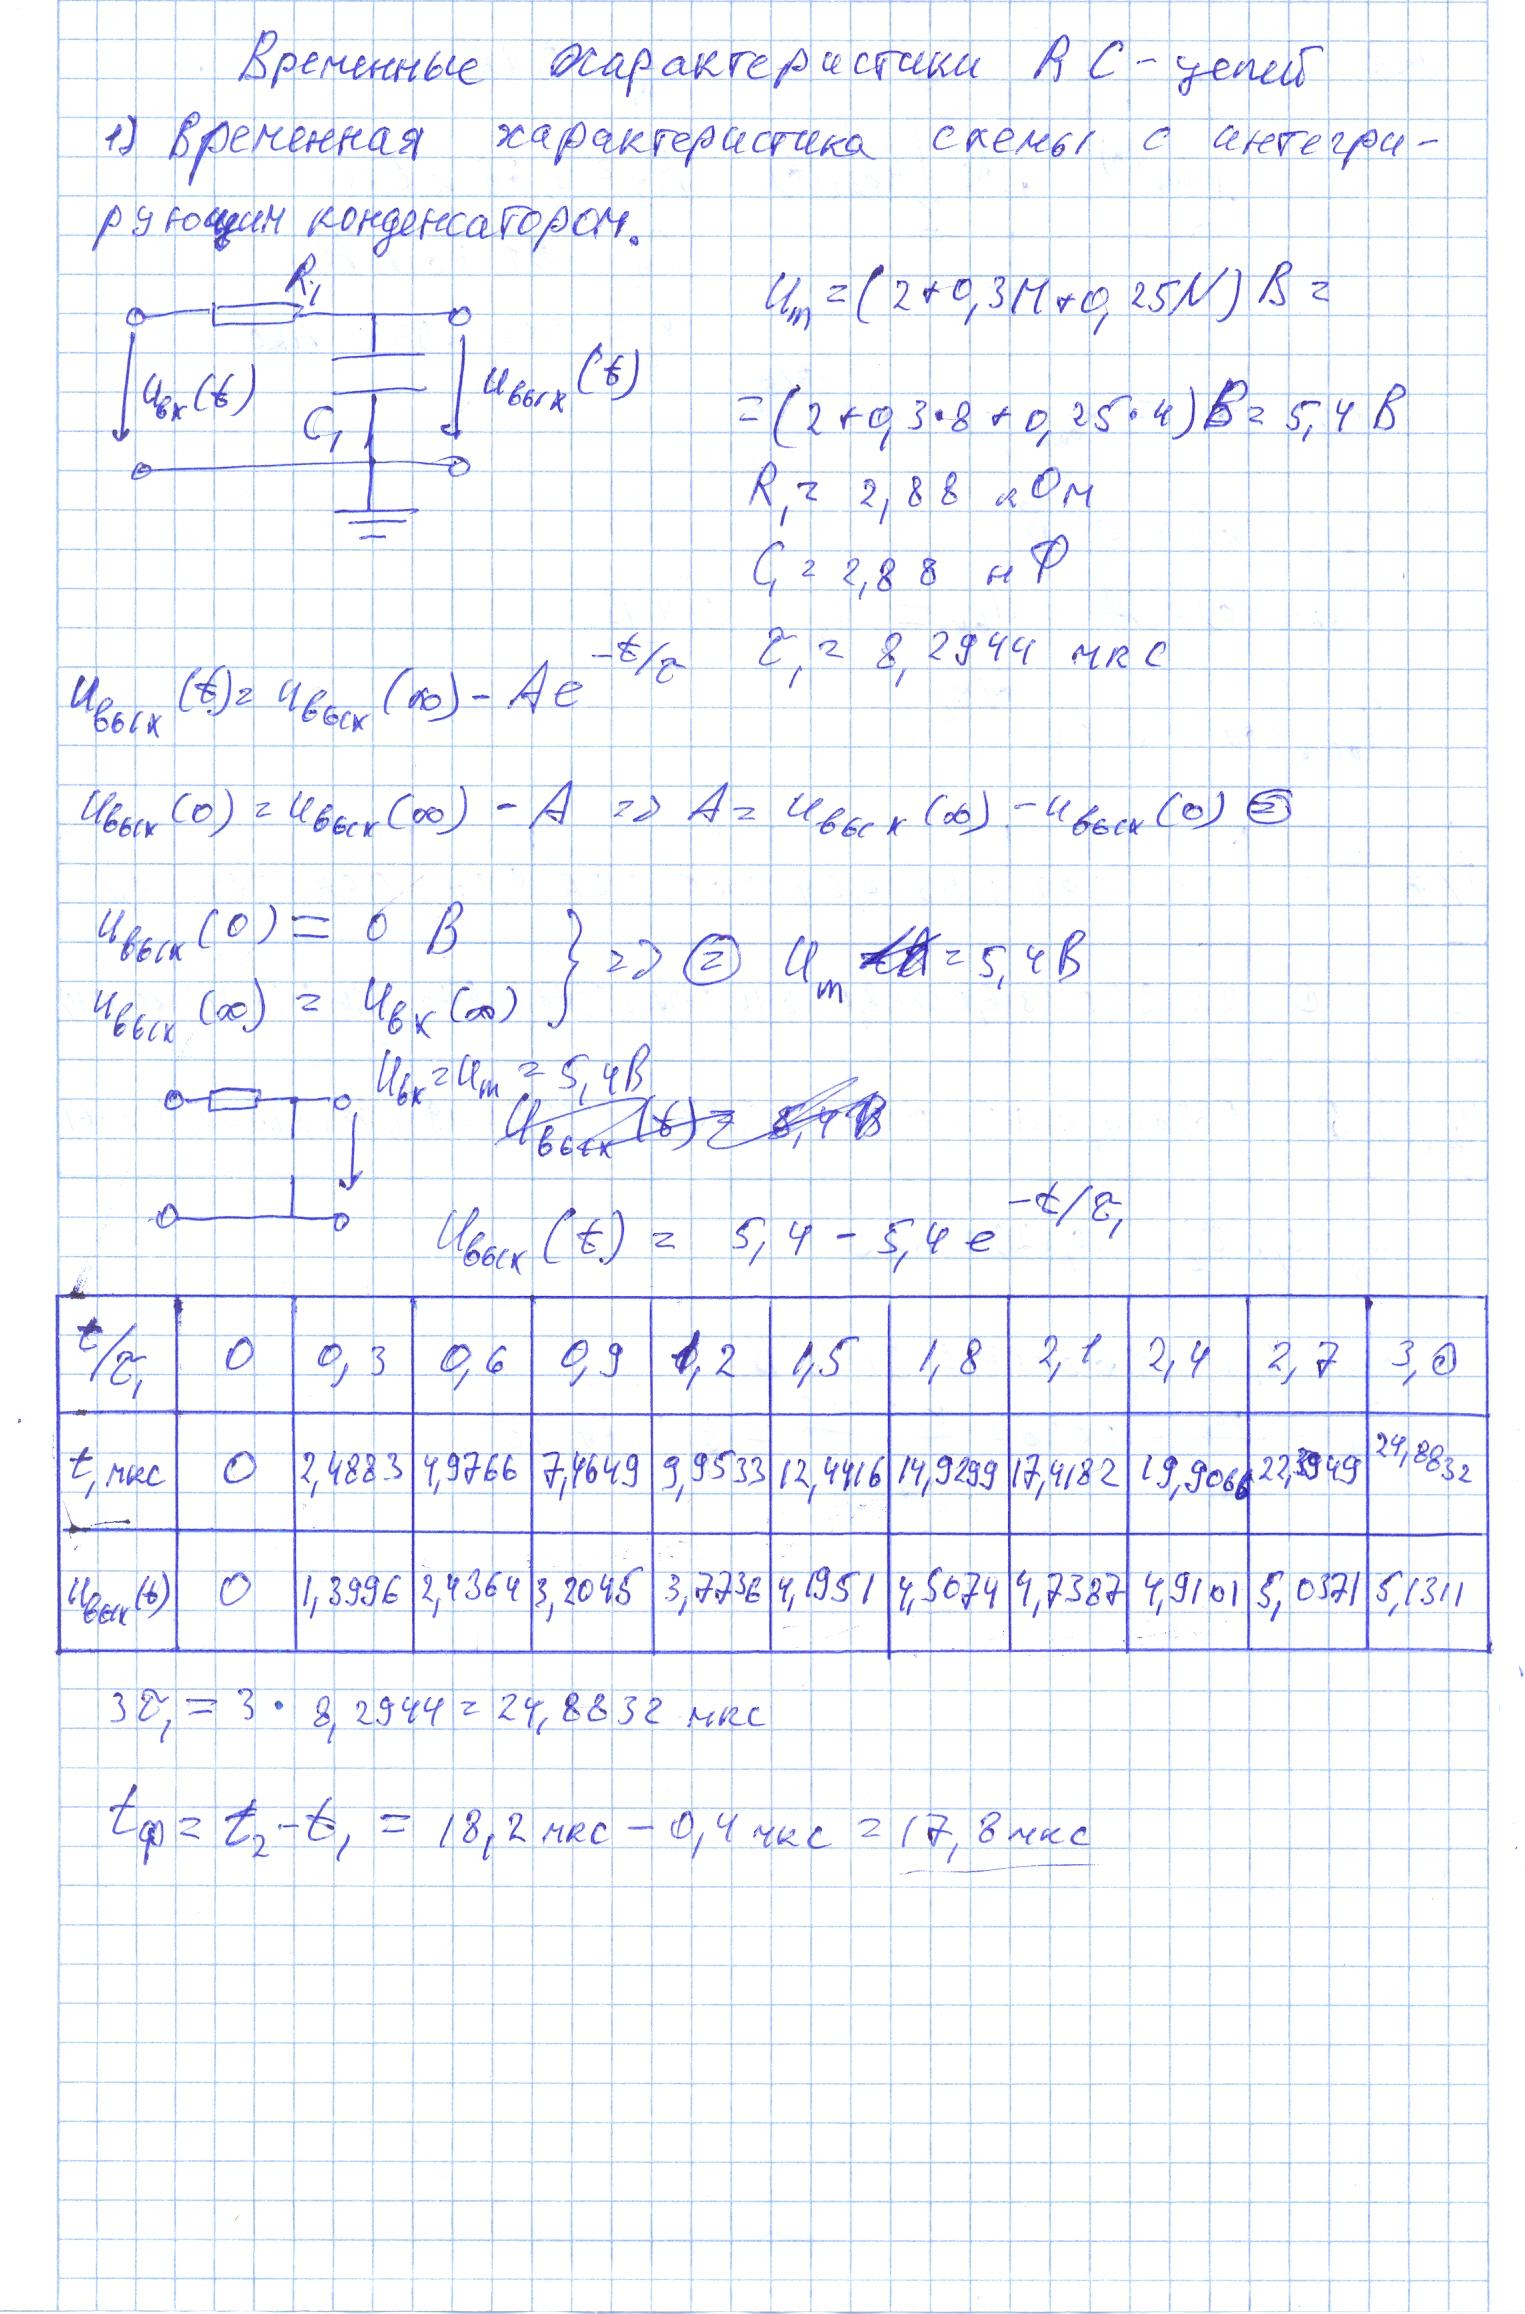 Временные характеристики RC-цепей
1) Временная характеристика схемы с интегри-
рующим конденсатором.
R₁
Uвх(t)
C₁
Uвых(t)
Um = (2+0,3M+0,25N) В =
= (2+0,3·8+0,25·4) В = 5,4 В
R₁ = 2,88 кОм
C₁ = 2,88 нФ
τ₁ = 8,2944 мкс
Uвых(t) = Uвых(∞) - Ae^(-t/τ)
Uвых(0) = Uвых(∞) - A => A = Uвых(∞) - Uвых(0) =
Uвых(0) = 0 В
Uвых(∞) = Uвх(∞)
} => = Um = 5,4 В
Uвх = Um = 5,4 В
Uвых(t) = 5,4 В
Uвых(t) = 5,4 - 5,4e^(-t/τ₁)
t/τ₁ 0 0,3 0,6 0,9 1,2 1,5 1,8 2,1 2,4 2,7 3,0
t, мкс 0 2,4883 4,9766 7,4649 9,9533 12,4416 14,9299 17,4182 19,9066 22,3949 24,8832
Uвых(t) 0 1,3996 2,4364 3,2045 3,7736 4,1951 4,5074 4,7387 4,9101 5,0371 5,1311
3τ₁ = 3 · 8,2944 = 24,8832 мкс
tф = t₂ - t₁ = 18,2 мкс - 0,4 мкс = 17,8 мкс